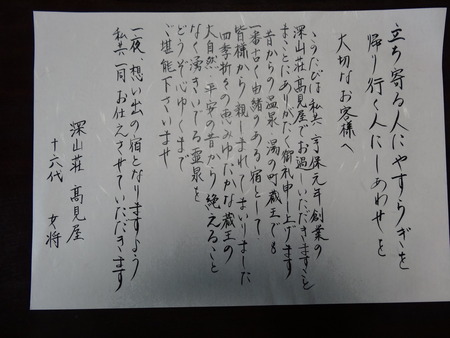 立ち寄る人にやすらぎを
帰り行く人にしあわせを
大切なお客様へ
このたびは私共 享保元年創業の
深山荘高見屋でお過しいただきますこと
まことにありがたく御礼申し上げます
昔からの温泉・湯の町蔵王でも
一番古く由緒のある宿として
皆様から親しまれてまいりました
四季折々の恵みゆたかな蔵王の
大自然 平安の昔から絶えること
なく湧きいでる霊泉を
どうぞ心ゆくまで
ご堪能下さいませ
一夜、想い出の宿となりますよう
私共一同お仕えさせていただきます
深山荘 高見屋
十六代 女将